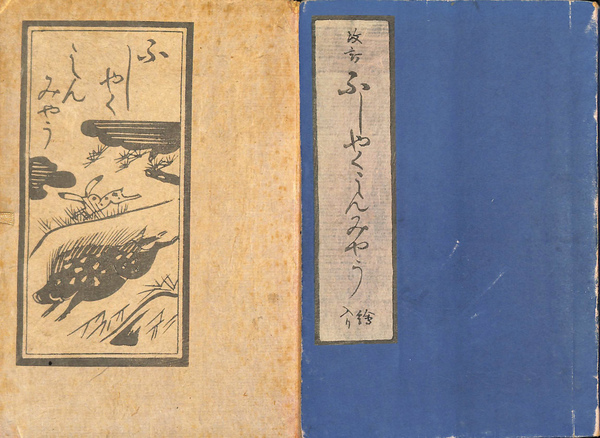 ふし
やく
しん
みやう
改訂
ふしやくしんみやう
繪
入り